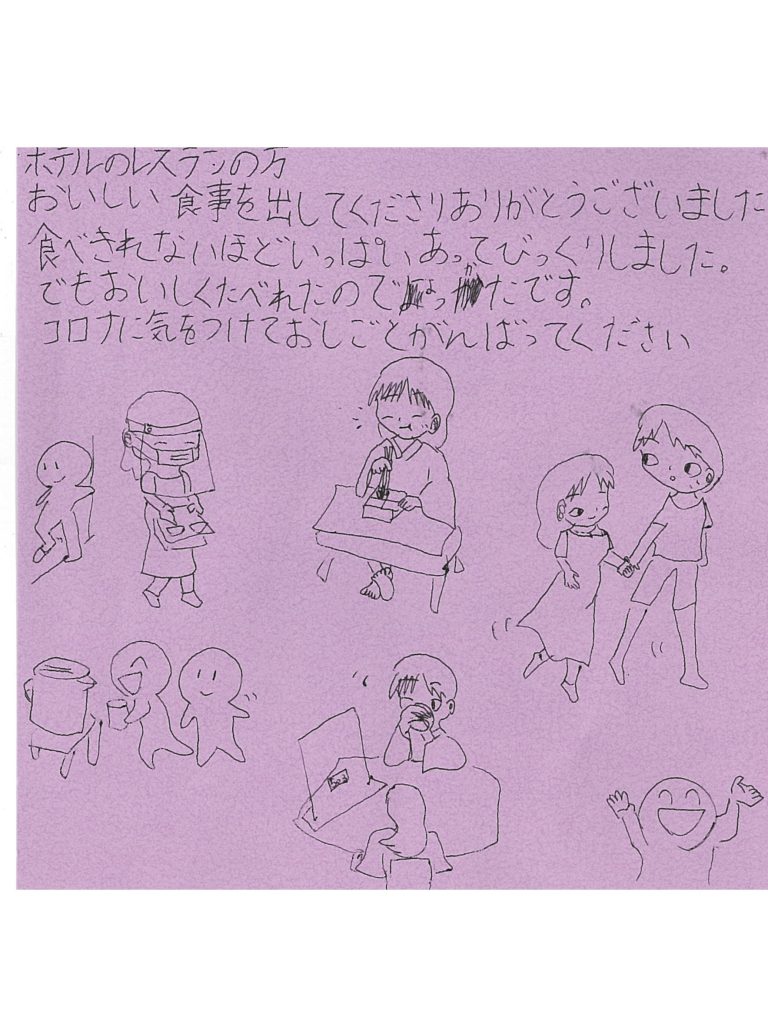 ホテルのレストランの方
おいしい食事を出してくださりありがとうございました
食べきれないほどいっぱいあってびっくりしました。
でもおいしくたべれたのでよかったです。
コロナに気をつけておしごとがんばってください